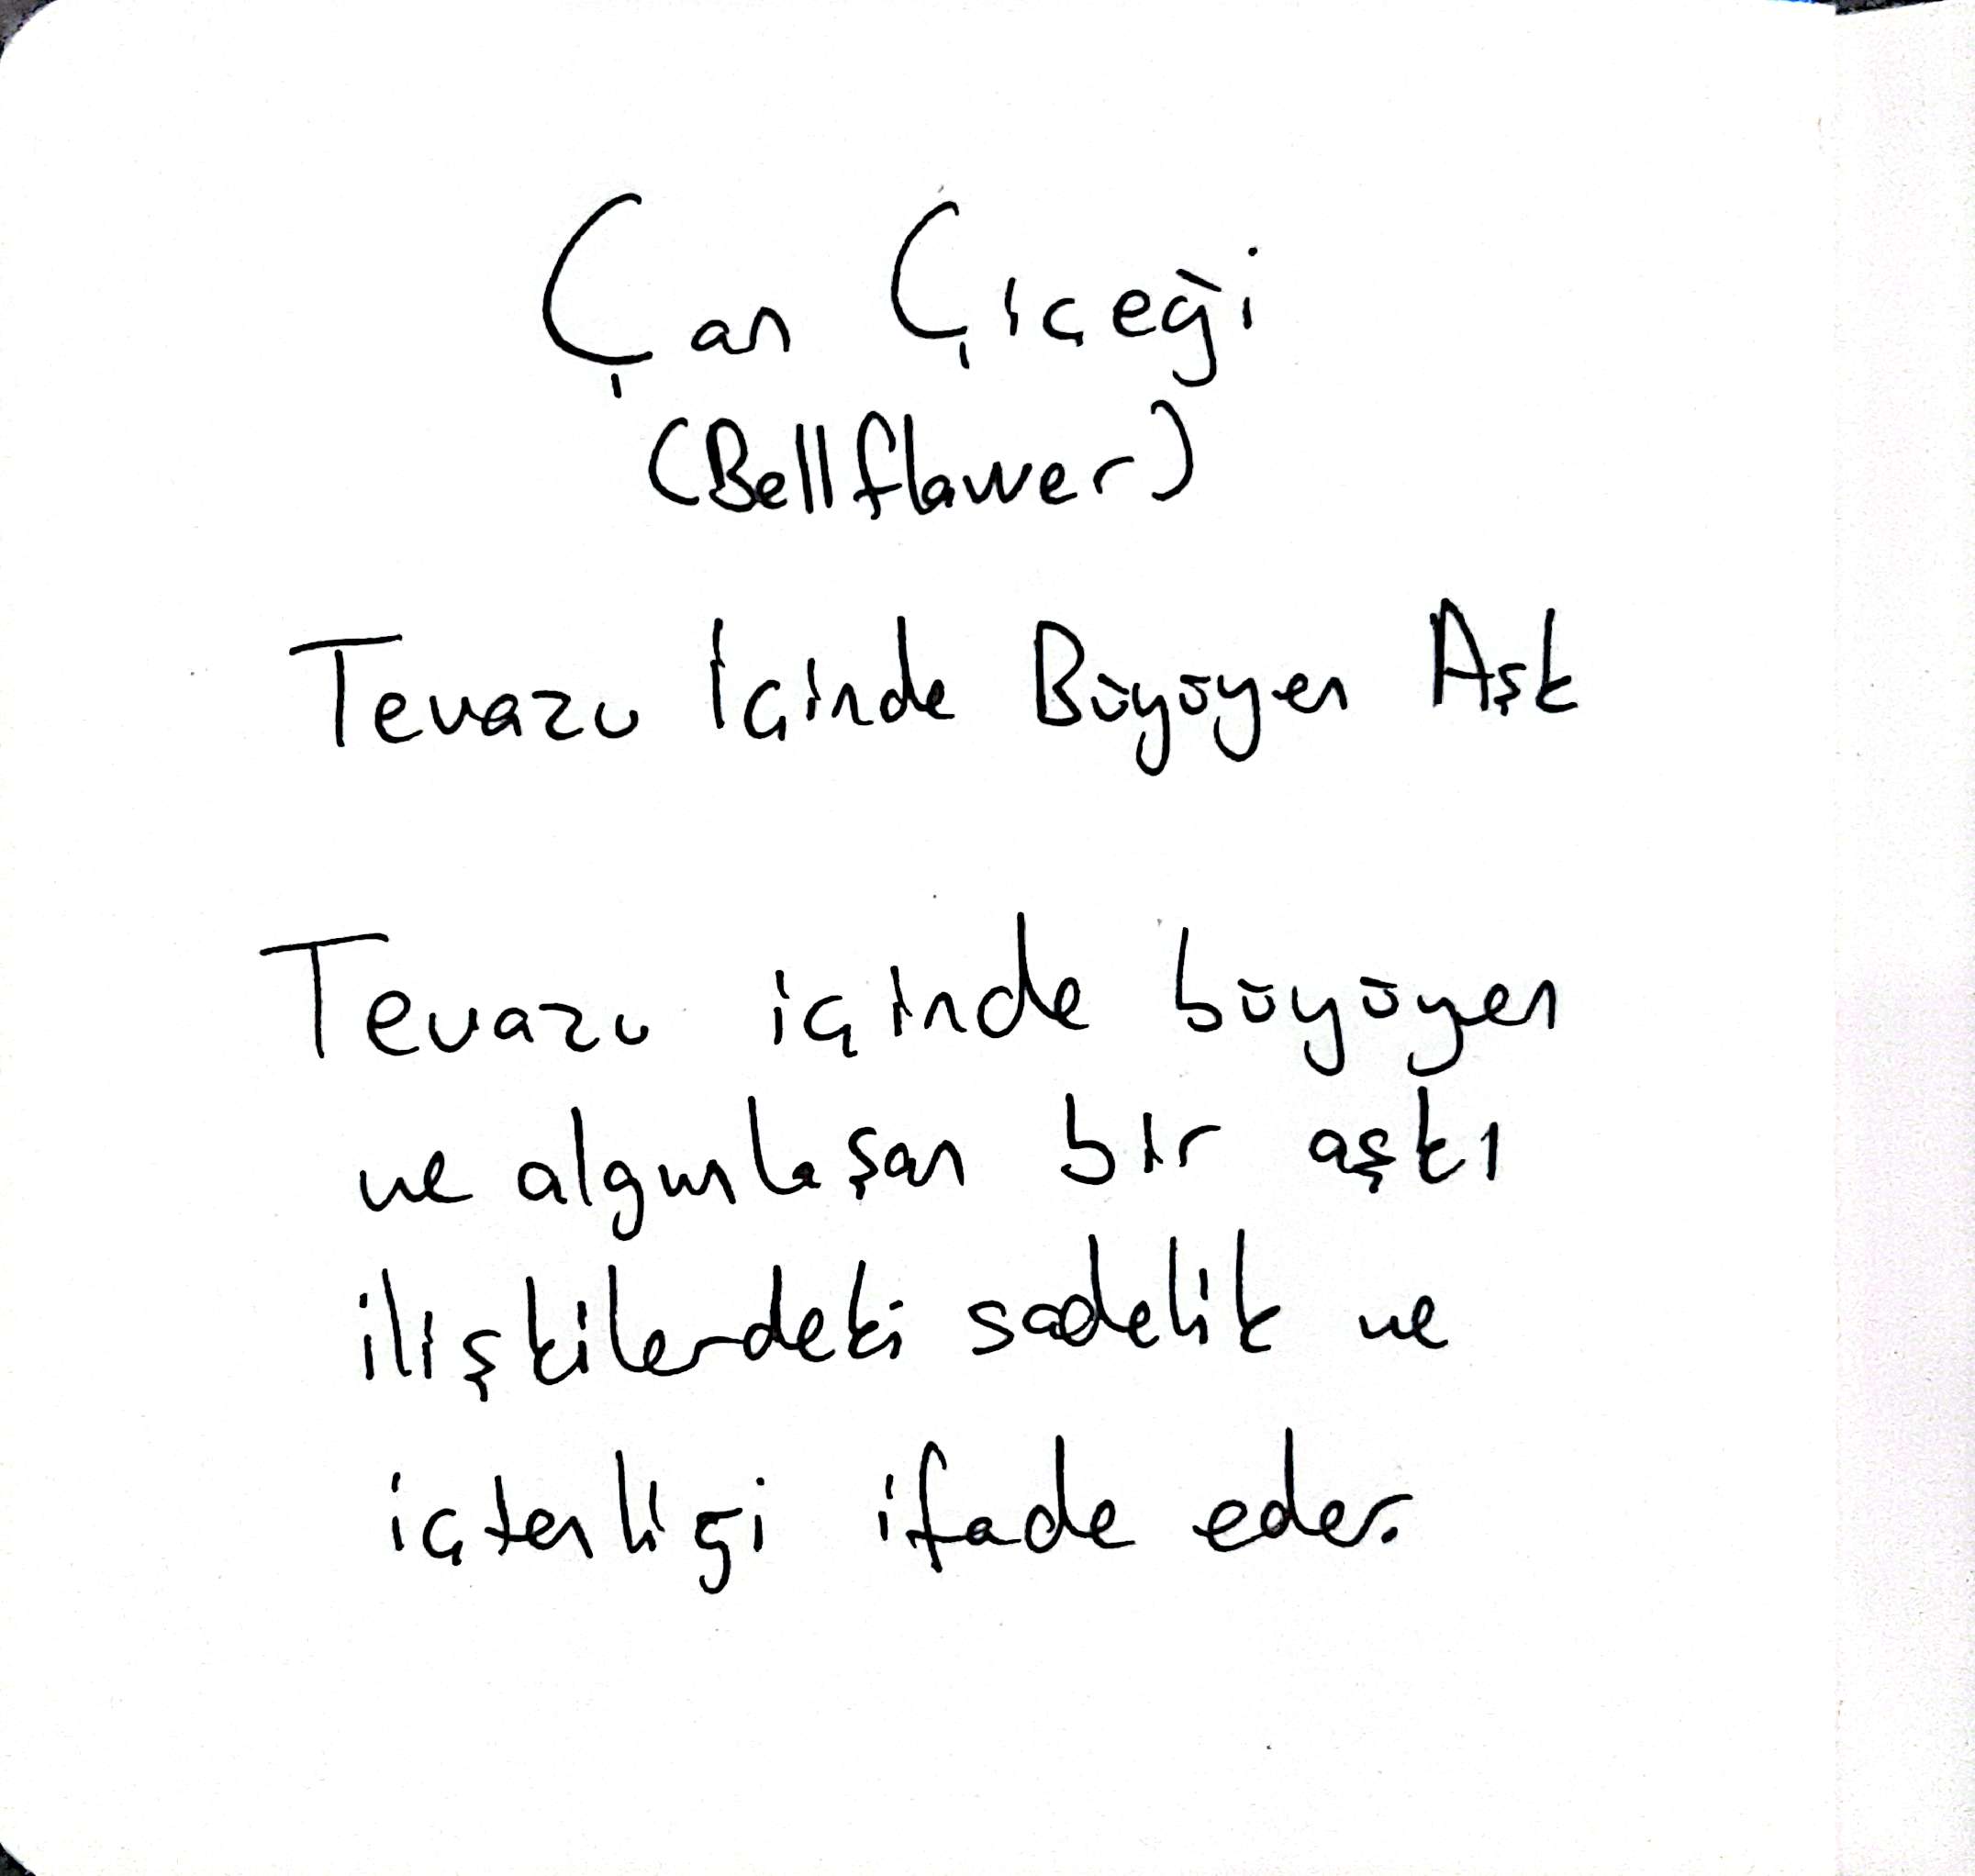 Çan Çiçeği
(Bellflower)
Tevazu İçinde Büyüyen Aşk
Tevazu içinde büyüyen
ve algınlaşan bir aşkı
ilişkilerdeki sadelik ve
içtenliği ifade eder.